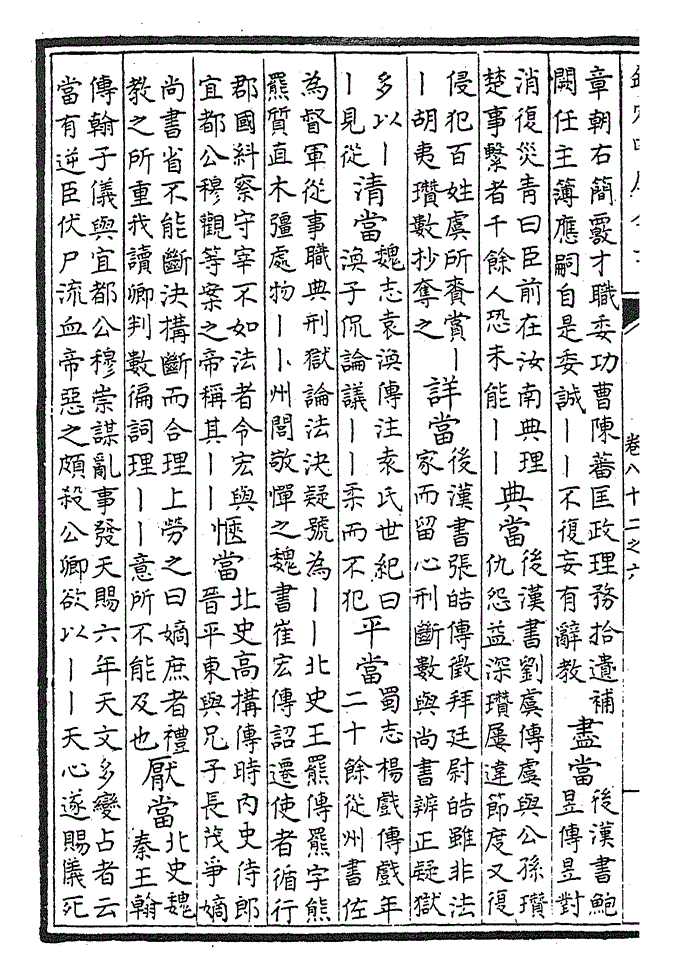 卷八十二之六
章朝右簡覈才職委功曹陳蕃匡政理務拾遺補
闕任主簿應嗣自是委誠——不復妄有辭教
盡當
後漢書鮑
昱傳昱對
消復災眚曰臣前在汝南典理
楚事繫者千餘人恐未能——
典當
後漢書劉虞傳虞與公孫瓚
仇怨益深瓚屢違節度又復
侵犯百姓虞所賚賞—
—胡夷瓚數抄奪之
詳當
後漢書張皓傳徵拜廷尉皓雖非法
家而留心刑斷數與尚書辨正疑獄
多以—
—見從
清當
魏志袁渙傳注袁氏世紀曰
渙子侃論議——柔而不犯
平當
蜀志楊戲傳戲年
二十餘從州書佐
為督軍從事職典刑獄論法決疑號為——北史王羆傳羆字熊
羆質直木彊處物——州閭敬憚之魏書崔宏傳詔遷使者循行
郡國糾察守宰不如法者令宏與
宜都公穆觀等案之帝稱其——
愜當
北史高構傳時內史侍郎
晉平東與兄子長茂爭嫡
尚書省不能斷決構斷而合理上勞之曰嫡庶者禮
教之所重我讀卿判數徧詞理——意所不能及也
厭當
北史魏
秦王翰
傳翰子儀與宜都公穆崇謀亂事發天賜六年天文多變占者云
當有逆臣伏尸流血帝惡之頗殺公卿欲以——天心遂賜儀死